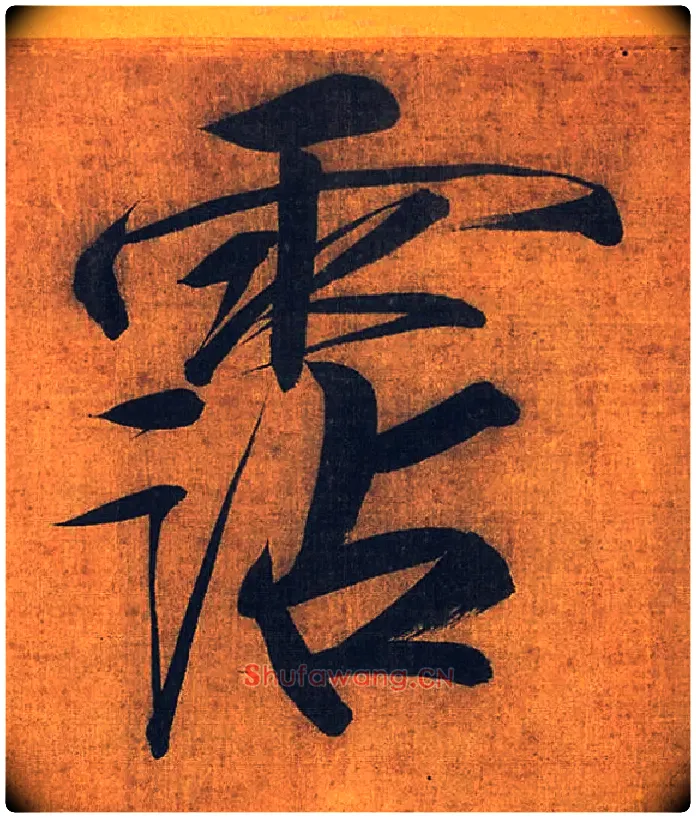 霑
Shufawang.CN